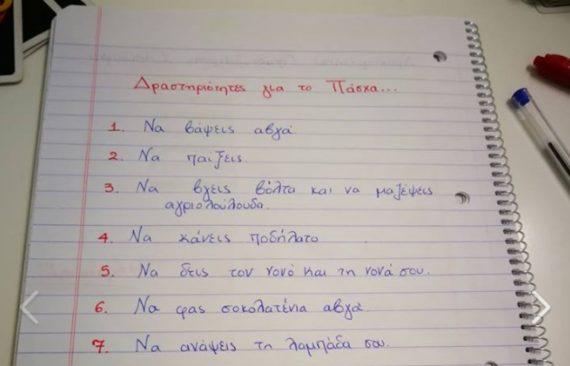 Δραστηριότητες για το Πάσχα...
1. Να βάψεις αβγά
2. Να παίξεις
3. Να βγεις βόλτα και να μαζέψεις
αγριολούλουδα.
4. Να κάνεις ποδήλατο
5. Να δεις τον νονό και τη νονά σου.
6. Να φας σοκολατένια αβγά
7. Να ανάψεις τη λαμπάδα σου.